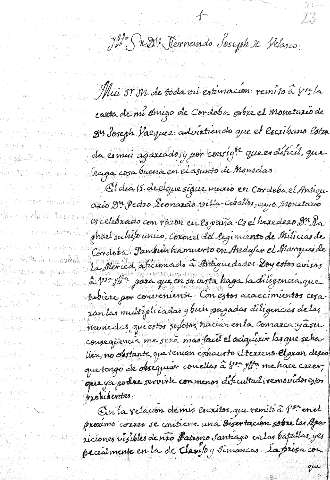 1
13
Yllmo Sr. Dn. Fernando Joseph de Velasco.
Mui Sr. Mio de toda mi estimacion: remito â V.S. la
carta de mi Amigo de Cordoba sobre el Monetario de
Dn. Joseph Vazquez: advirtiendo que el Escribano
da es mui agarrado, y por consigte. que es dificil, que
haga cosa buena en el asunto de Monedas.
El dia 15. de el que sigue murio en Cordoba el Antiqu
ario Dn. Pedro Leonardo Villa-Ceballos, cuyo Monetario
es celebrado con razon en España. Es el heredero Dn. Ra
phael su hijo unico, Coronel del Regimiento de Milicias de
Cordoba. Tambien ha muerto en Andujar el Marques de
la Merced, aficionado â Antiguedades. Doy estos avisos
â V.S. Yllma. para que en su vista haga la diligencia, que
tubiere por conveniente. Con estos acaecimientos cesa
ran las multiplicadas y bien pagadas diligencias de las
monedas, que estos sujetos hacian en la Comarca, y a su
consequencia me serâ mas facil el adquirir las que se ha
llen, no obstante, que tienen exhausto el terreno. El gran deseo
que tengo de obsequiar con ellas â V.S. Yllma. me hace creer,
que ya podre servirle con menos dificultad, removidos estos
pretendientes.
En la relacion de mis Escritos, que remitô â V.S. en el
proximo correo se contiene una Disertacion sobre las Apa
riciones visibles de nro. Patrono Santiago en las batallas, y es
pecialmente en la de Clavijo y Simancas. La prisa con
que